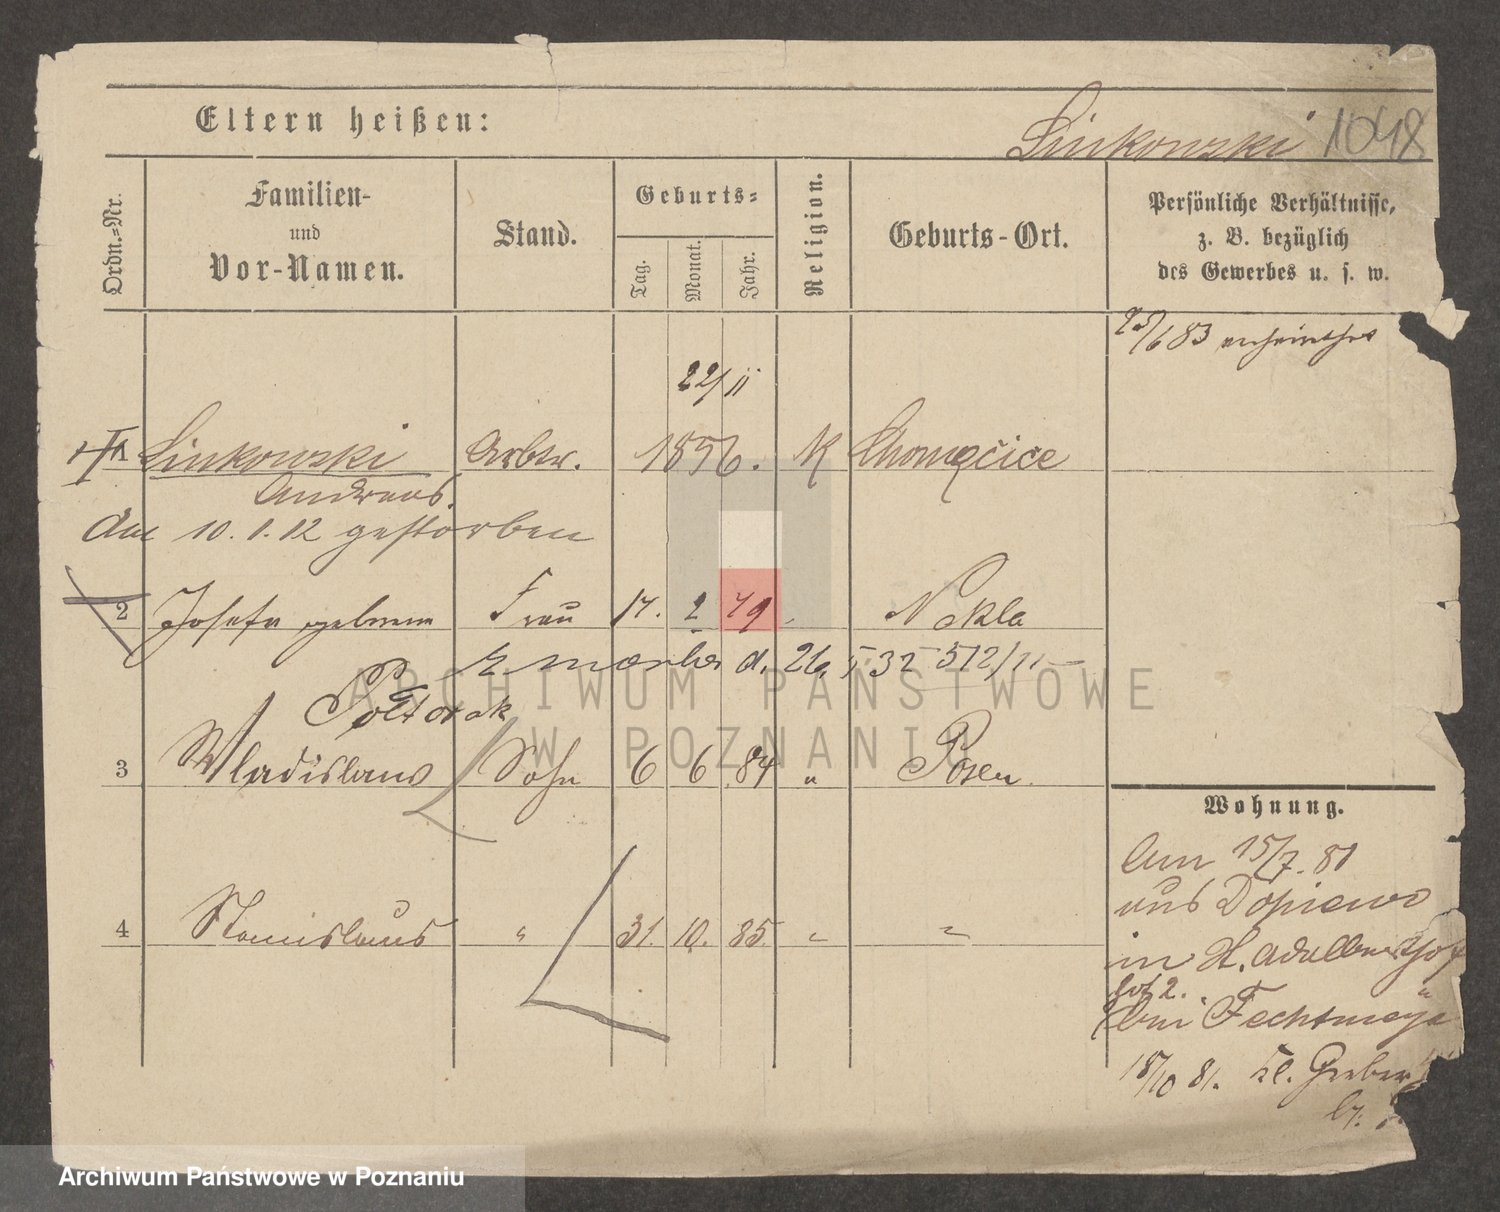 Eltern heißen:
Linkowski 1048
Ordn.=Nr.
Familien-
und
Vor-Namen.
Stand.
Geburts=
Tag.
Monat.
Jahr.
Religion.
Geburts-Ort.
Persönliche Verhältnisse,
z. B. bezüglich
des Gewerbes u. s. w.
/6 83
22/11
1 Linkowski Arbtr. 1856. K Chomęcice
Andreas.
Am 10.1.12 gestorben
2 Josefa geborene Frau 17. 2 Nekla
d. 26. 512/11
Półtorak
3 Wladislaus Sohn 6 6 84 " Posen
4 Stanislaus " 31. 10. 85. " "
Wohnung.
Am 15/7. 81
aus Dopiewo
in
hof 2.
bei Fechtmeyer
18/10 81. kl. Gerber
ARCHIWUM PAŃSTWOWE
W POZNANIU
Archiwum Państwowe w Poznaniu